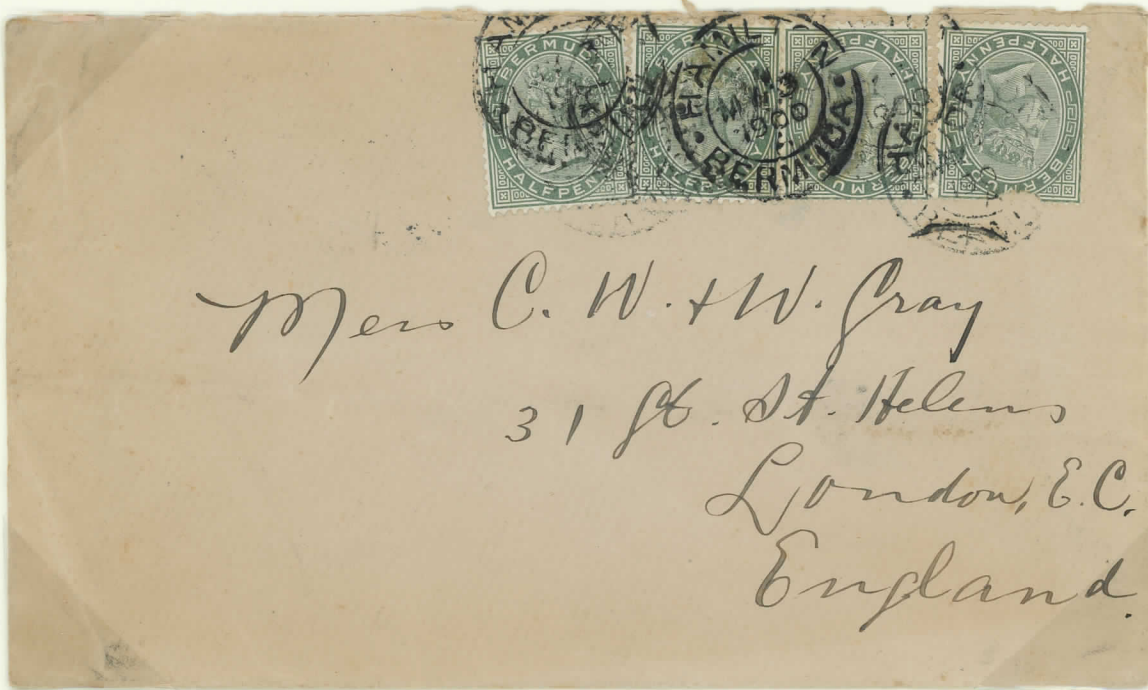 BERMUDA
HALFPENNY
HALFPENNY
BERMUDA
HALFPENNY
BERMUDA
HALFPENNY
HAMILTON
1900
BERMUDA
Mess C. W. & W. Gray
31 Gt. St. Helens
London, E.C.
England.